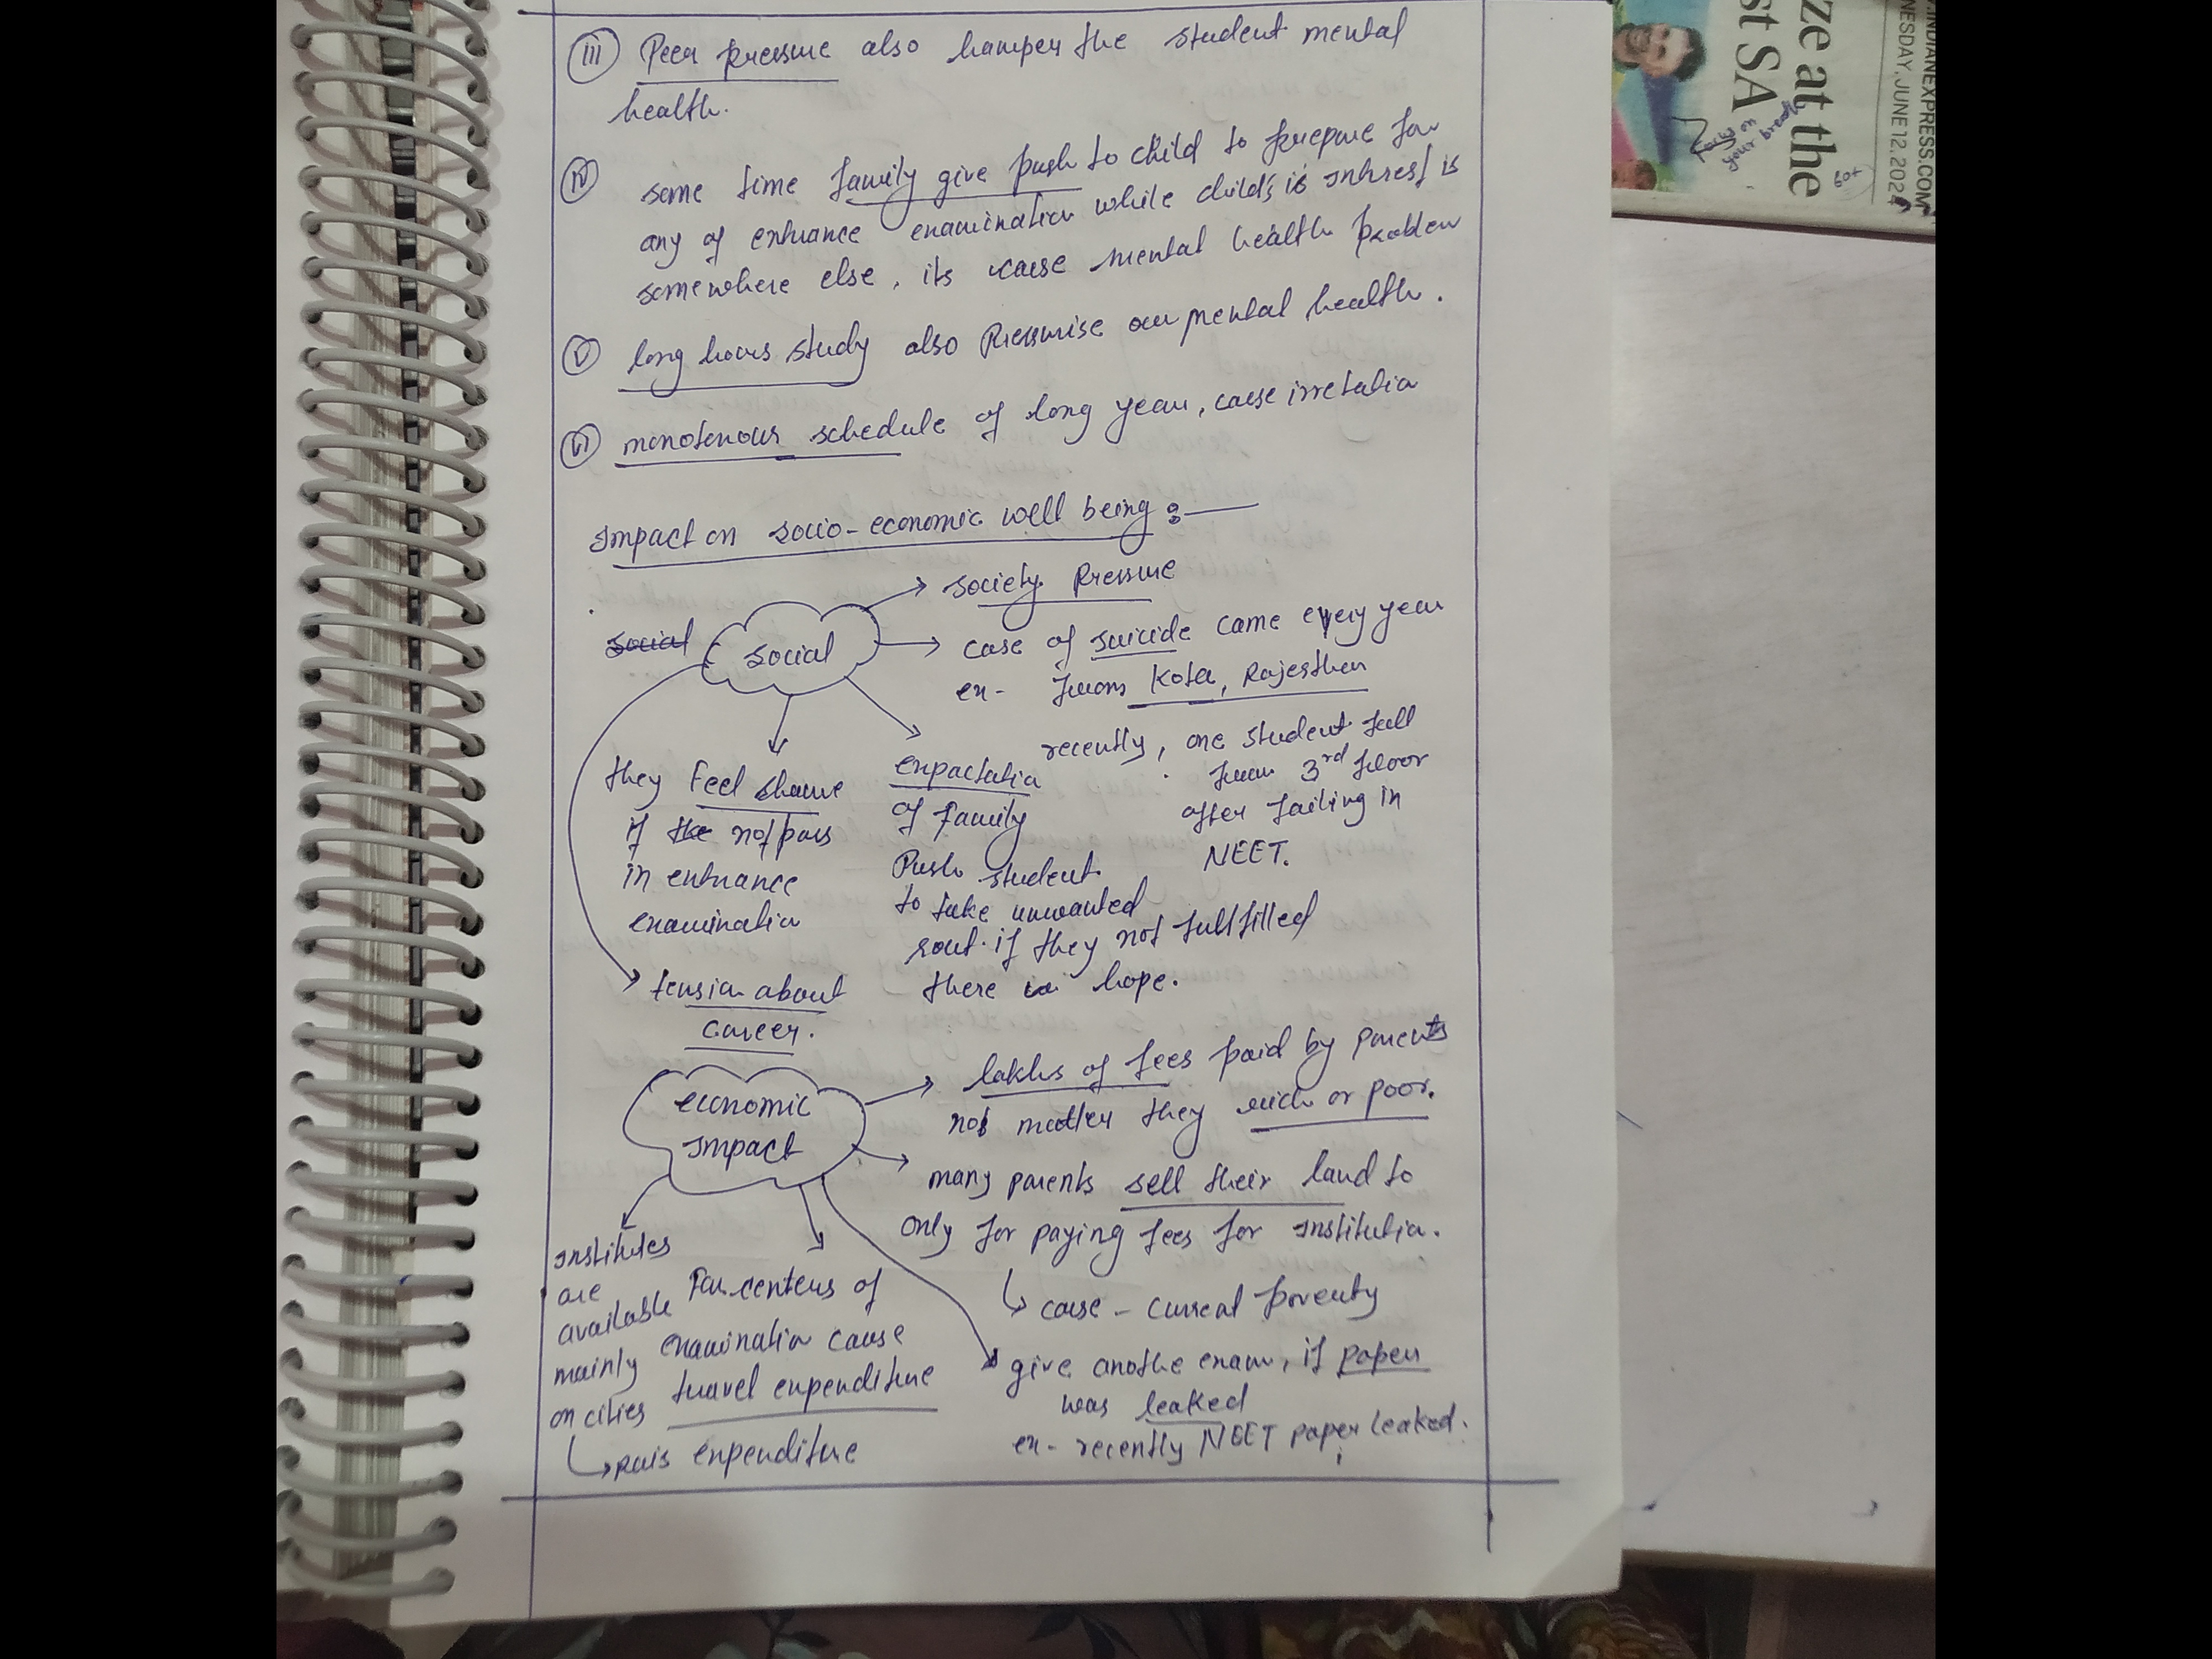 (iii) Peer pressure also hamper the student mental
health.
(iv) some time family give push to child to prepare for
any of entrance examination while child's is intrest is
somewhere else, its cause mental health problem
(v) long hours study also Pressurise our mental health.
(vi) monotenous schedule of long year, cause irretation
Impact on socio-economic well being :—
social
social
→ society Pressure
→ case of suicide came every year
ex- from Kota, Rajesthan
recently, one student fall
from 3rd floor
after failing in
NEET.
expactation
of family
Push student
to take unwanted
rout if they not fullfilled
there hope.
they Feel shame
if the not pass
in entrance
examination
tension about
career.
economic
Impact
→ lakhs of fees paid by parents
not matter they rich or poor.
→ many parents sell their land to
only for paying fees for institution.
↳ cause - curreat poverty
give anothe exam, if paper
was leaked
ex- recently NEET paper leaked.
Far centers of
examination cause
travel expenditure
institutes
are
available
mainly
on cities
↳ rais expenditure
ze at the
st SA
.INDIANEXPRESS.COM
NESDAY, JUNE 12, 2024
your breath